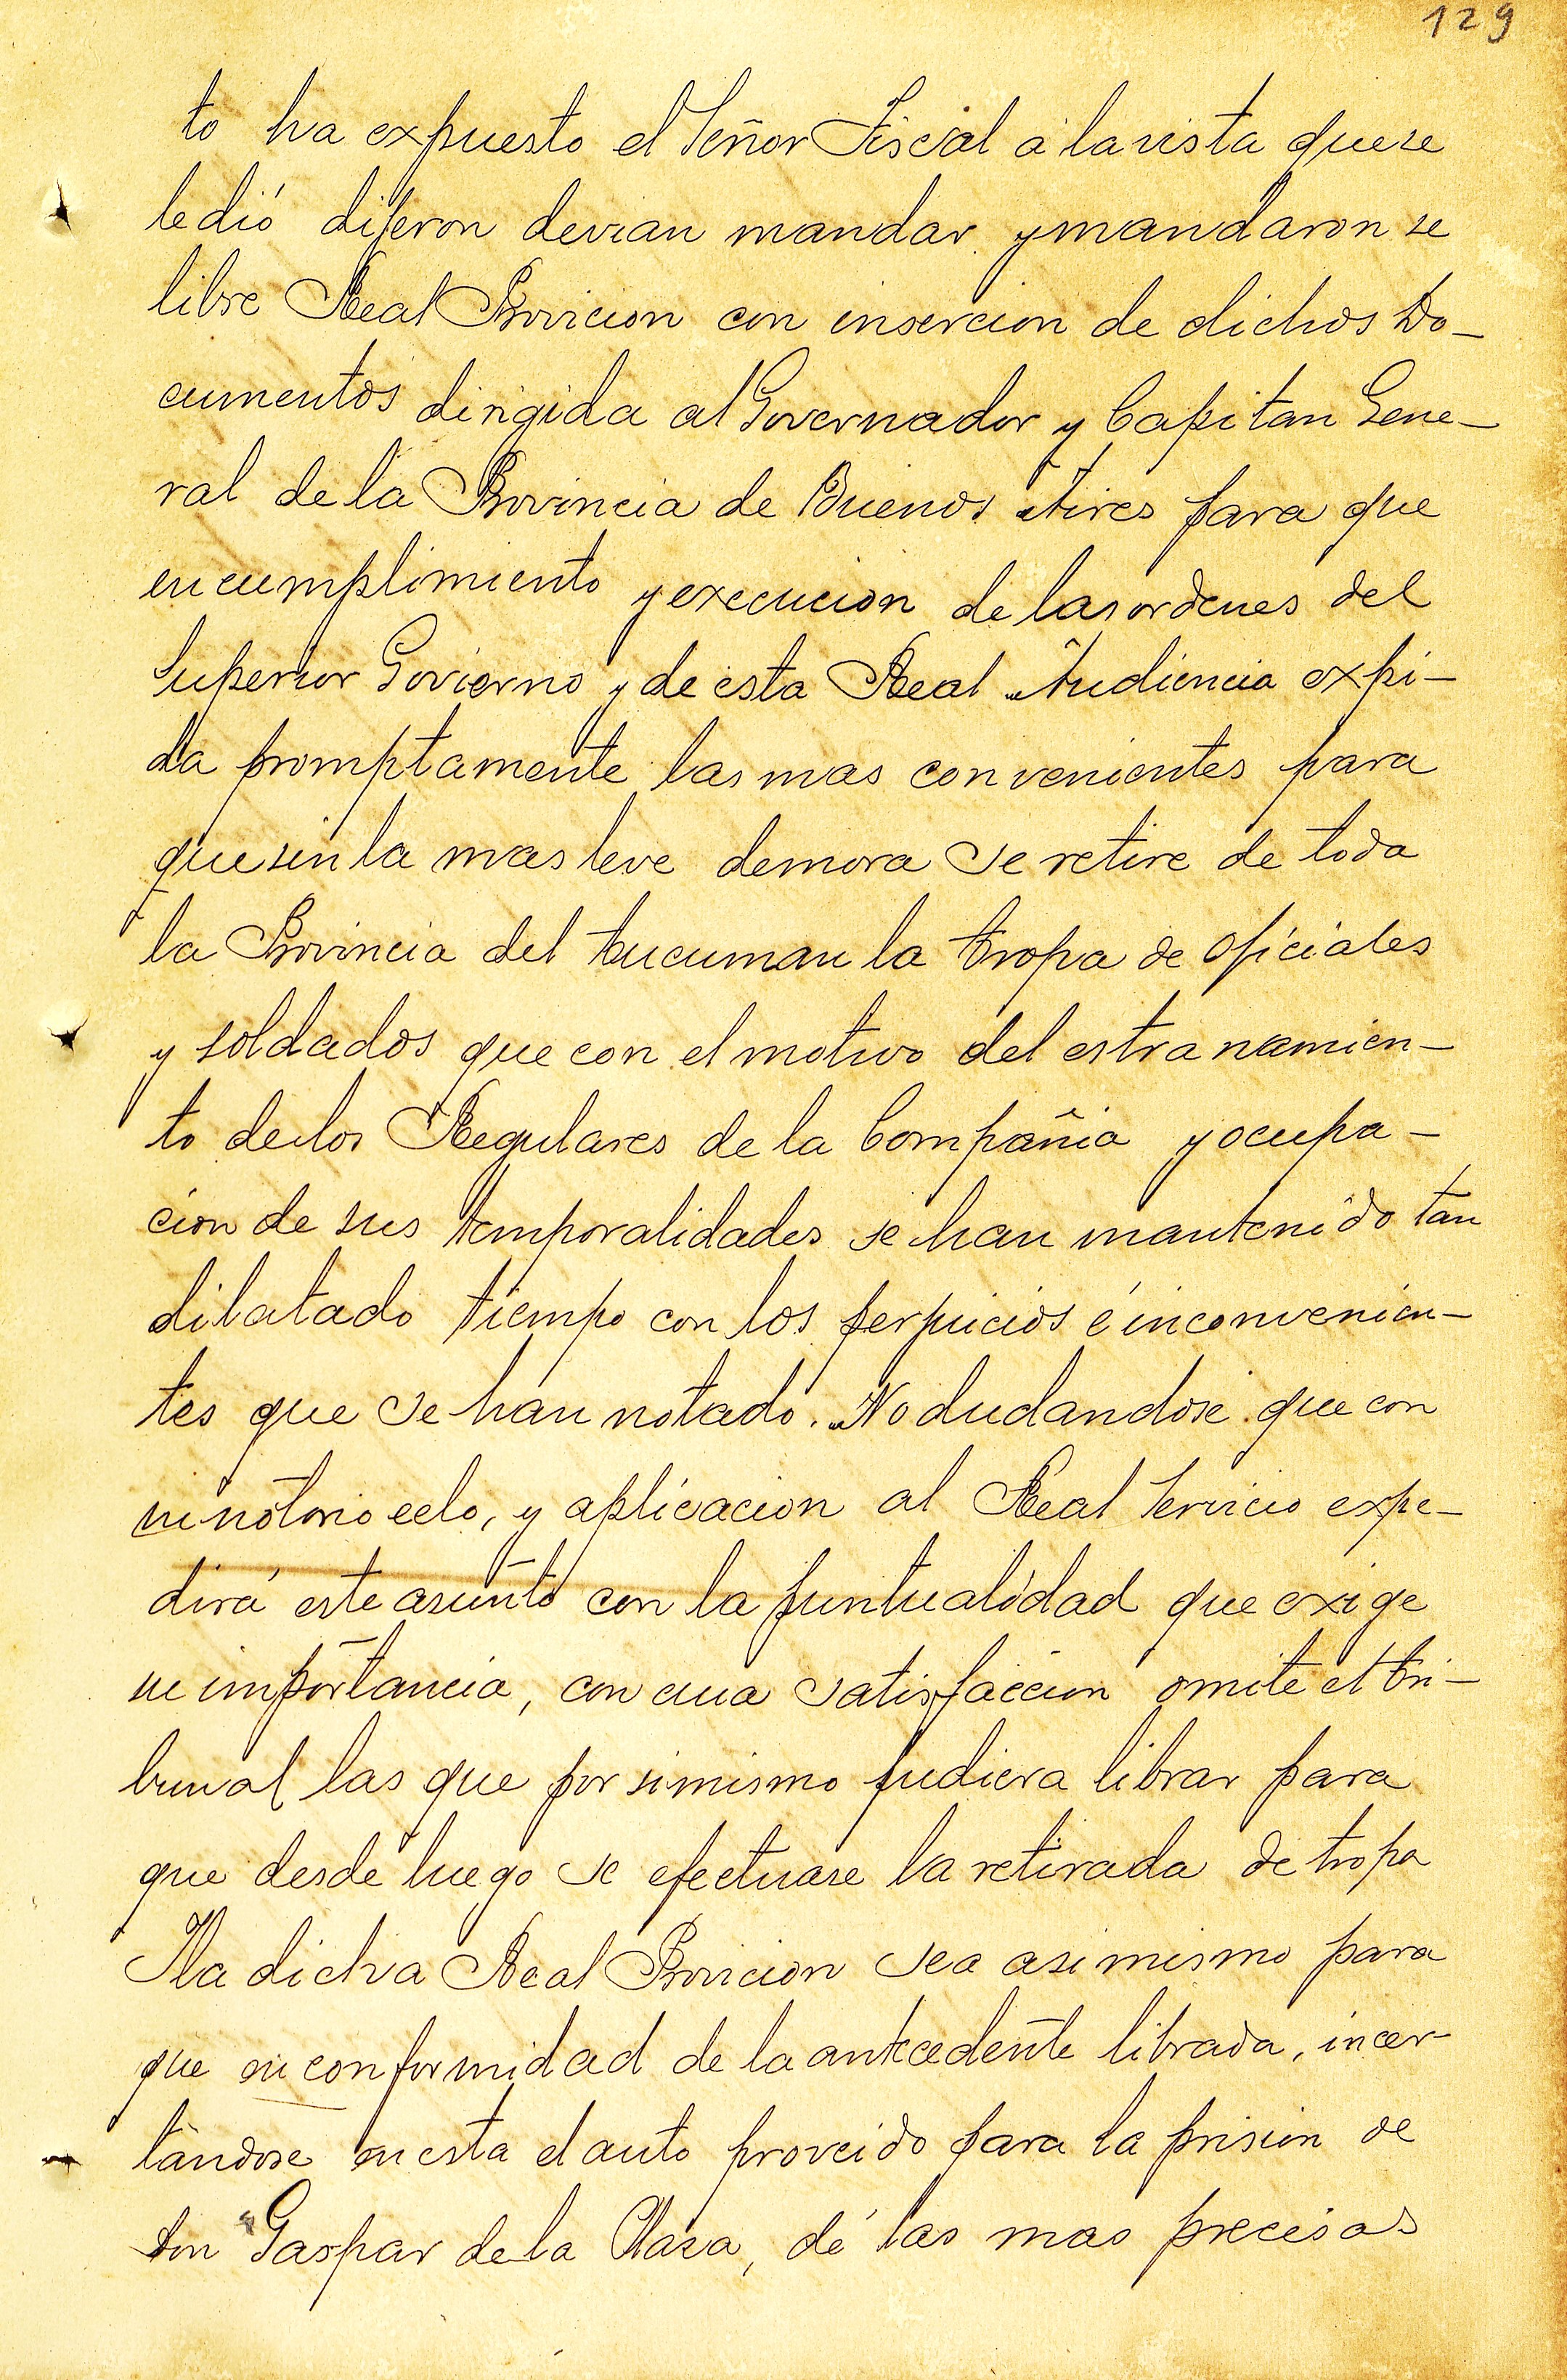 129
to ha expuesto el Señor Fiscal á la vista que se
le dió dijeron devian mandar y mandaron se
libre Real Provicion con insercion de dichos Do-
cumentos dirigida al Governador y Capitan Gene-
ral de la Provincia de Buenos Aires para que
en cumplimiento y execucion de las ordenes del
Superior Govierno y de esta Real Audiencia expi-
da promptamente las mas convenientes para
que sin la mas leve demora se retire de toda
la Provincia del tucuman la tropa de oficiales
y soldados que con el motivo del estranamien-
to de los Regulares de la Compañia y ocupa-
cion de sus temporalidades se han mantenido tan
dilatado tiempo con los perjuicios é inconvenien-
tes que se han notado. No dudandose que con
su notorio celo, y aplicacion al Real Servicio expe-
dirá este asunto con la puntualidad que exige
su importancia, con cuia satisfaccion omite el tri-
bunal las que por si mismo pudiera librar para
que desde luego se efectuase la retirada de tropa
Y la dicha Real Provicion sea asi mismo para
que en conformidad de la antecedente librada, incer-
tandose en esta el auto proveido para la prision de
don Gaspar de la Plaza, dé las mas precisas